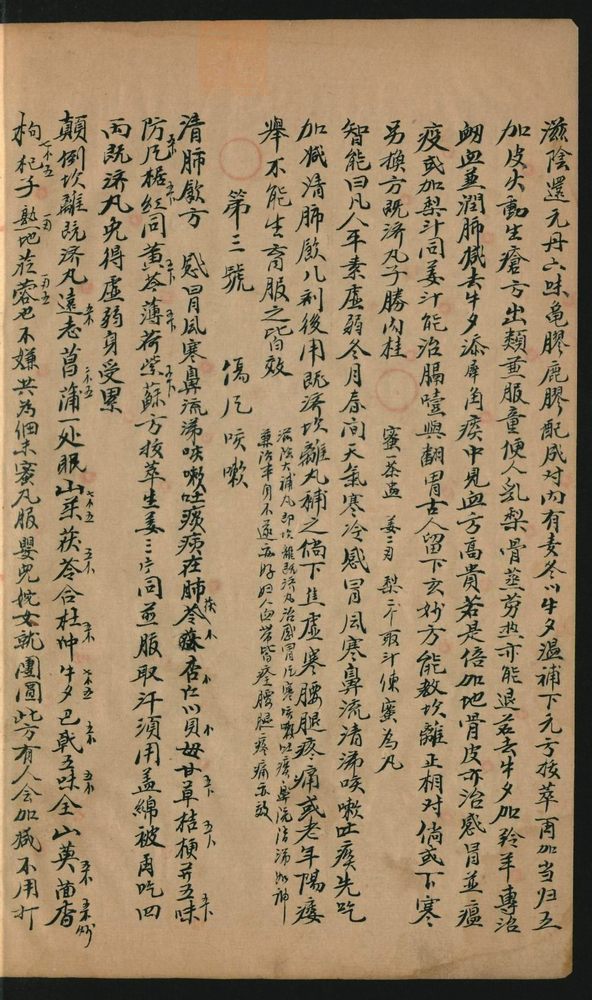 滋陰還元丹六味龜膠鹿膠配成对内有麦冬以牛夕温補下元方拔萃再加当归五
加皮火動生瘡方出類並服童便人乳梨骨蒸劳热亦能退若去牛夕加羚羊專治
衂血並潤肺减去牛夕添犀角痰中見血方高貴若是倍加地骨皮亦治感冒並瘟
疫或加梨汁同姜汁能治膈噎與翻胃古人留下玄妙方能教坎離正相对倘或下寒
另換方既济丸子勝肉桂
蜜一茶盅 姜二刃 梨二个取汁煉蜜為丸
智能曰凡人平素虚弱冬月春间天氣寒冷感冒風寒鼻流清涕咳嗽吐痰先吃
加减清肺飲几剂後用既济坎離丸補之倘下焦虚寒腰腿疼痛或老年陽痿
舉不能生育服之皆效
滋陰大補丸即坎離既济丸治感冒風寒咳嗽吐痰鼻流清涕如神
兼治半身不遂亦好妇人血崩皆痊腰腿疼痛亦效
第三號 傷风咳嗽
清肺飲方 感冒風寒鼻流涕咳嗽吐痰痰在肺苓蘇杏仁以貝母甘草桔梗並五味
防风橘红同黄芩薄荷紫蘇方拔萃生姜三片同並服取汗須用盖綿被再吃四
丙既济丸免得虚弱身受累
顛倒坎離既济丸遠志菖蒲一处眠山茱茯苓合杜仲牛夕巴戟五味全山萸茴香
枸杞子熟地苁蓉也不嫌共为细末蜜丸服嬰兒姹女就團圓此方有人会加减不用打